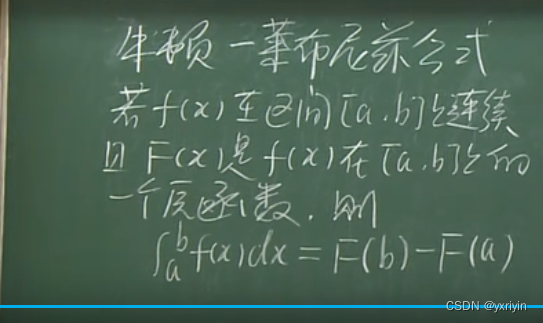 牛顿-莱布尼兹公式
若f(x)在区间[a.b]上连续
且F(x)是f(x)在[a.b]上的
一个原函数.则
∫ₐᵇf(x)dx=F(b)-F(a)
CSDN @yxriyin